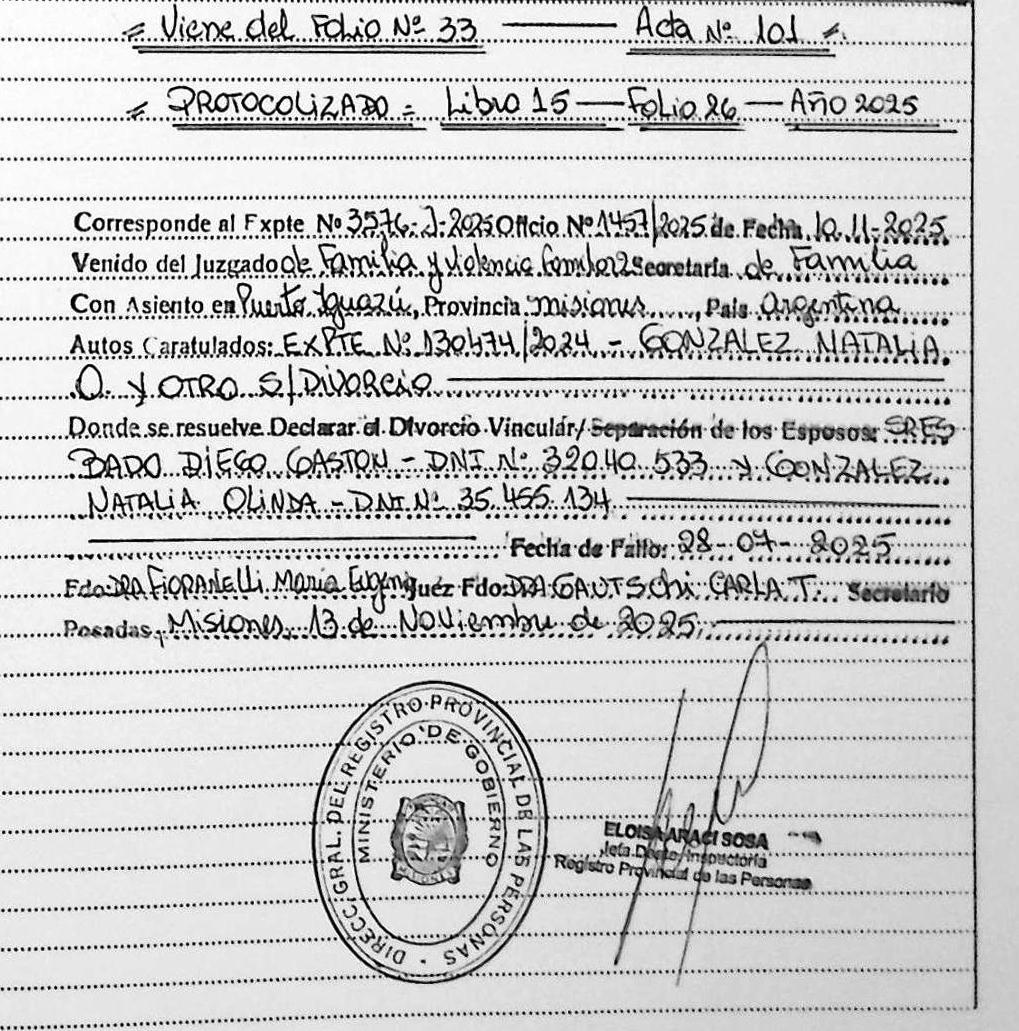 = Viene del Folio Nº 33 ——— Acta Nº 101 =.
= PROTOCOLIZADO = Libro 15 — Folio 26 — Año 2025
Corresponde al Expte Nº 3576-J-2025 Oficio Nº 1457/2025 de Fecha 10-11-2025
Venido del Juzgado de Familia y Violencia Familiar 2 Secretaría de Familia
Con Asiento en Puerto Iguazú, Provincia Misiones, País Argentina
Autos Caratulados: EXPTE Nº 130474/2024 - GONZALEZ NATALIA
O. y OTRO S/DIVORCIO
Donde se resuelve Declarar el Divorcio Vincular/ Separación de los Esposos: SRES
BADO DIEGO GASTON - DNI Nº 32040.533 y GONZALEZ
NATALIA OLINDA - DNI Nº 35.455.134
Fecha de Fallo: 28-07-2025
Fdo: DRA FIORANELLI Maria Eugenia Juez Fdo: DRA GAUTSCHI CARLA T. Secretario
Posadas, Misiones, 13 de Noviembre de 2025.
DIRECC. GRAL. DEL REGISTRO PROVINCIAL DE LAS PERSONAS
MINISTERIO DE GOBIERNO
ELOISA ARACI SOSA
Jefa Depto. Inspectoría
Registro Provincial de las Personas